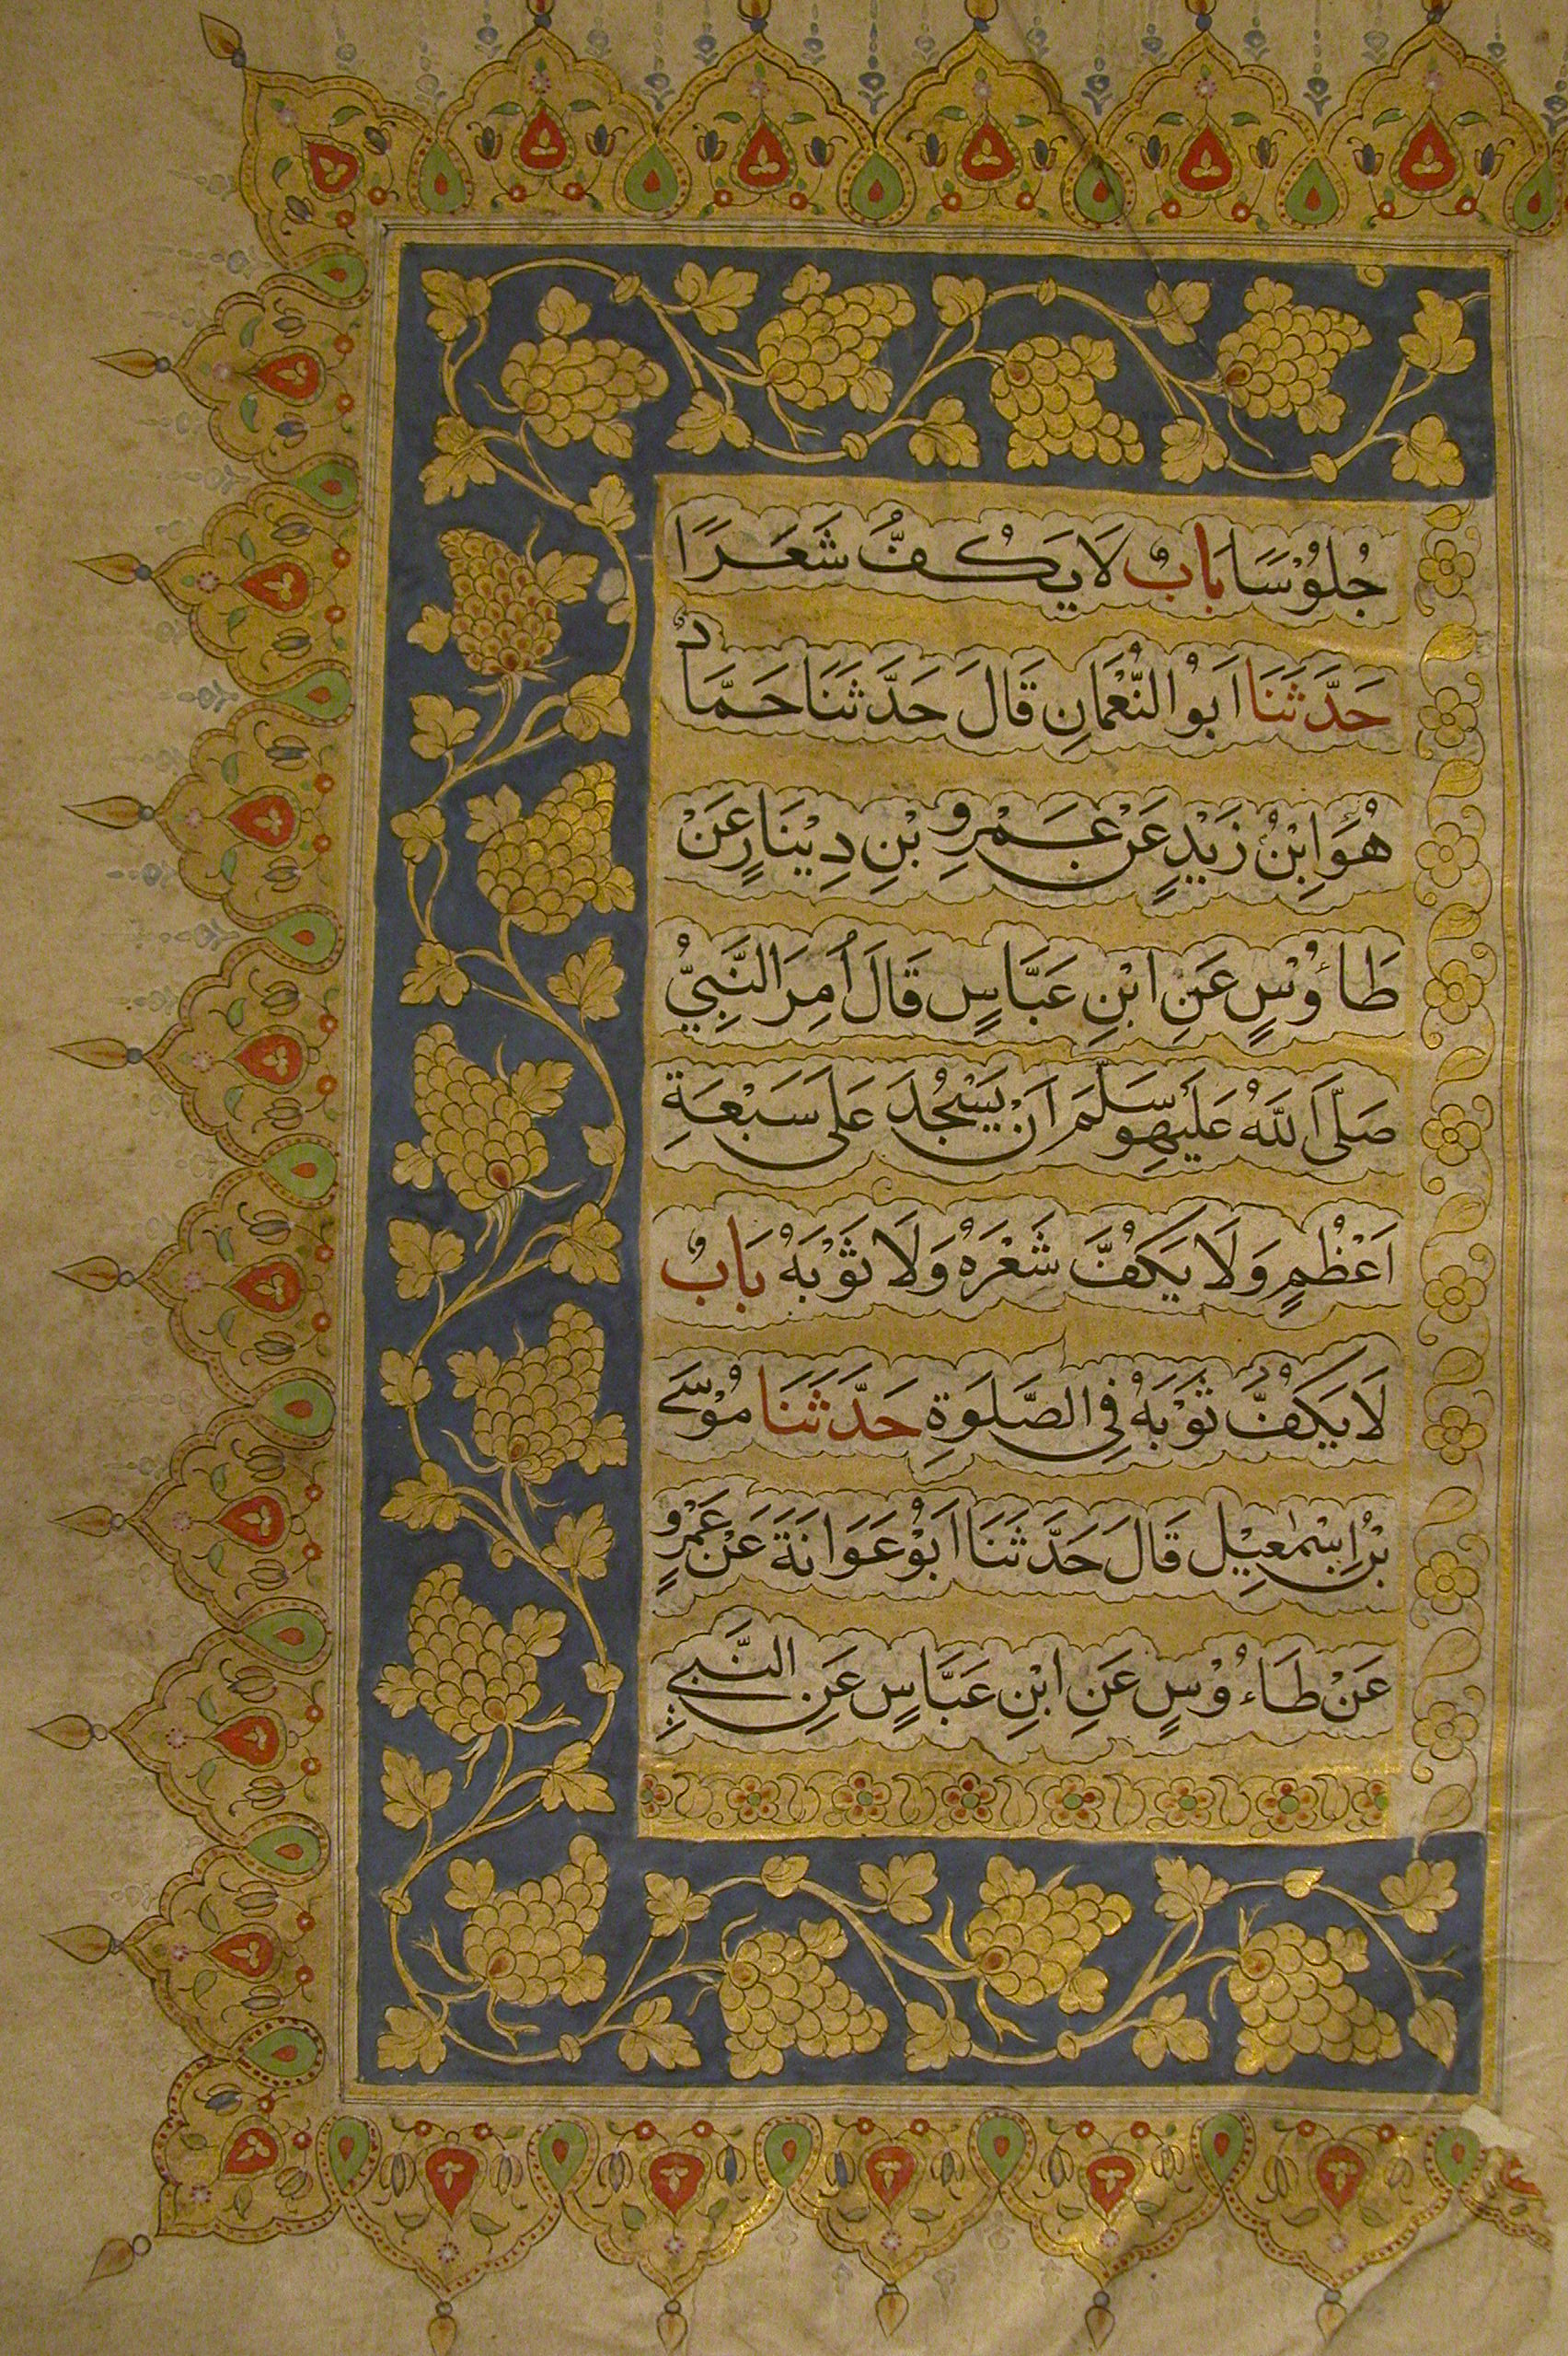 جُلُوْسًا بَابٌ لَا يَكُفُّ شَعَرًا
حَدَّثَنَا اَبُو النُّعْمَانِ قَالَ حَدَّثَنَا حَمَّادٌ
هُوَ ابْنُ زَيْدٍ عَنْ عَمْرِو بْنِ دِيْنَارٍ عَنْ
طَاءُوْسٍ عَنِ ابْنِ عَبَّاسٍ قَالَ اُمِرَ النَّبِيُّ
صَلَّى اللهُ عَلَيْهِ وَسَلَّمَ اَنْ يَسْجُدَ عَلٰى سَبْعَةِ
اَعْظُمٍ وَلَا يَكُفَّ شَعْرَهُ وَلَا ثَوْبَهُ بَابٌ
لَا يَكُفُّ ثَوْبَهُ فِي الصَّلَوةِ حَدَّثَنَا مُوْسَى
بْنُ اِسْمٰعِيْلَ قَالَ حَدَّثَنَا اَبُوْ عَوَانَةَ عَنْ عَمْرٍو
عَنْ طَاءُوْسٍ عَنِ ابْنِ عَبَّاسٍ عَنِ النَّبِيِّ